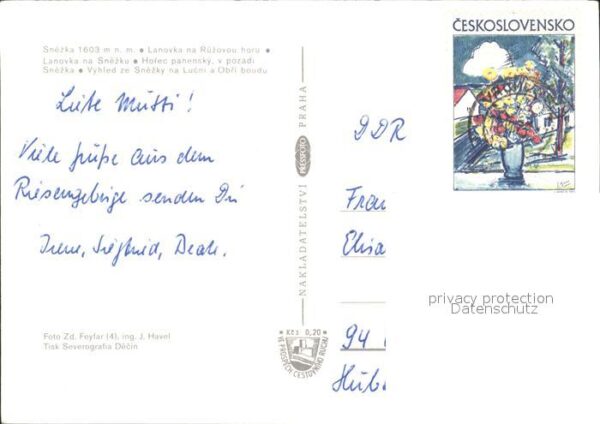 Sněžka 1603 m n. m. • Lanovka na Růžovou horu •
Lanovka na Sněžku • Hořec panenský, v pozadí
Sněžka • Výhled ze Sněžky na Luční a Obří boudu
Liebe Mutti!
Viele Grüße aus dem
Riesengebirge senden Dir
Irene, Siegfried, Beate.
Foto Zd. Feyfar (4), ing. J. Havel
Tisk Severografia Děčín
NAKLADATELSTVÍ PRESSFOTO PRAHA
Kčs 0,20
VE PROSPĚCH CESTOVNÍHO RUCHU
ČESKOSLOVENSKO
DDR
Frau
Elisa
94
Hub
privacy protection
Datenschutz